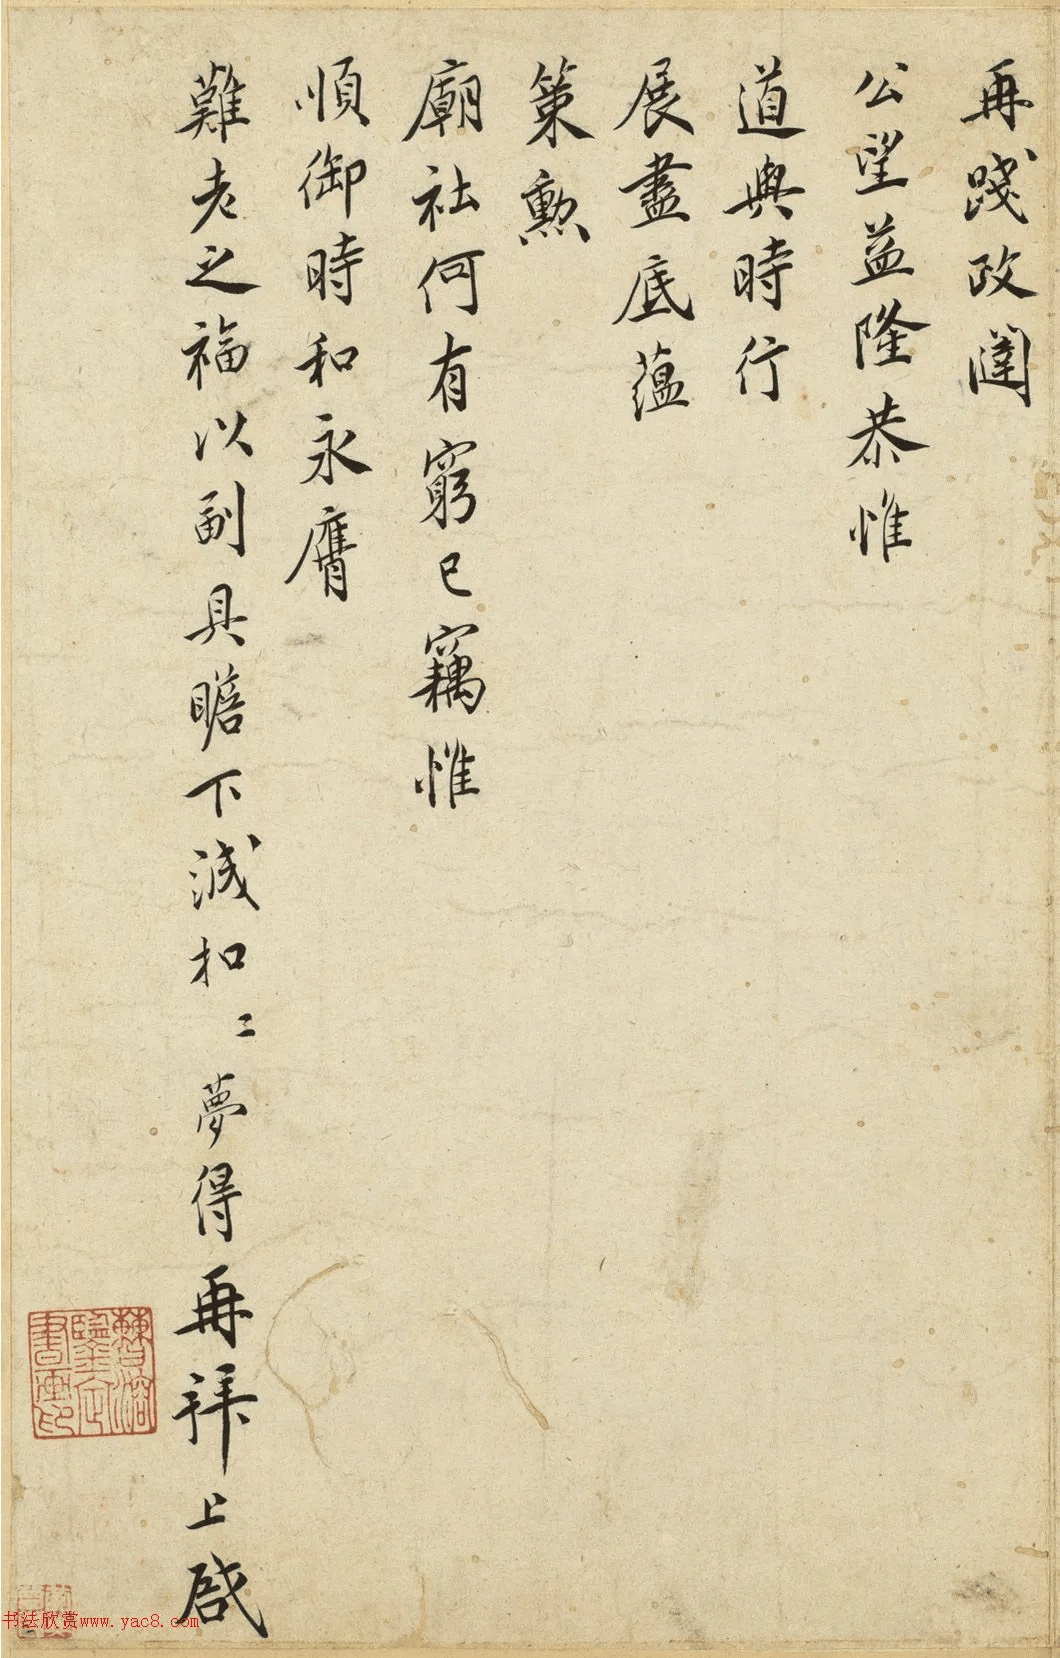 再踐政閫
公望益隆恭惟
道與時行
展盡底蘊
策勲
廟社何有窮已竊惟
順御時和永膺
難老之福以副具瞻下誠扣〻夢得再拜上啟
鑒定
書畫印
书法欣赏www.yac8.com